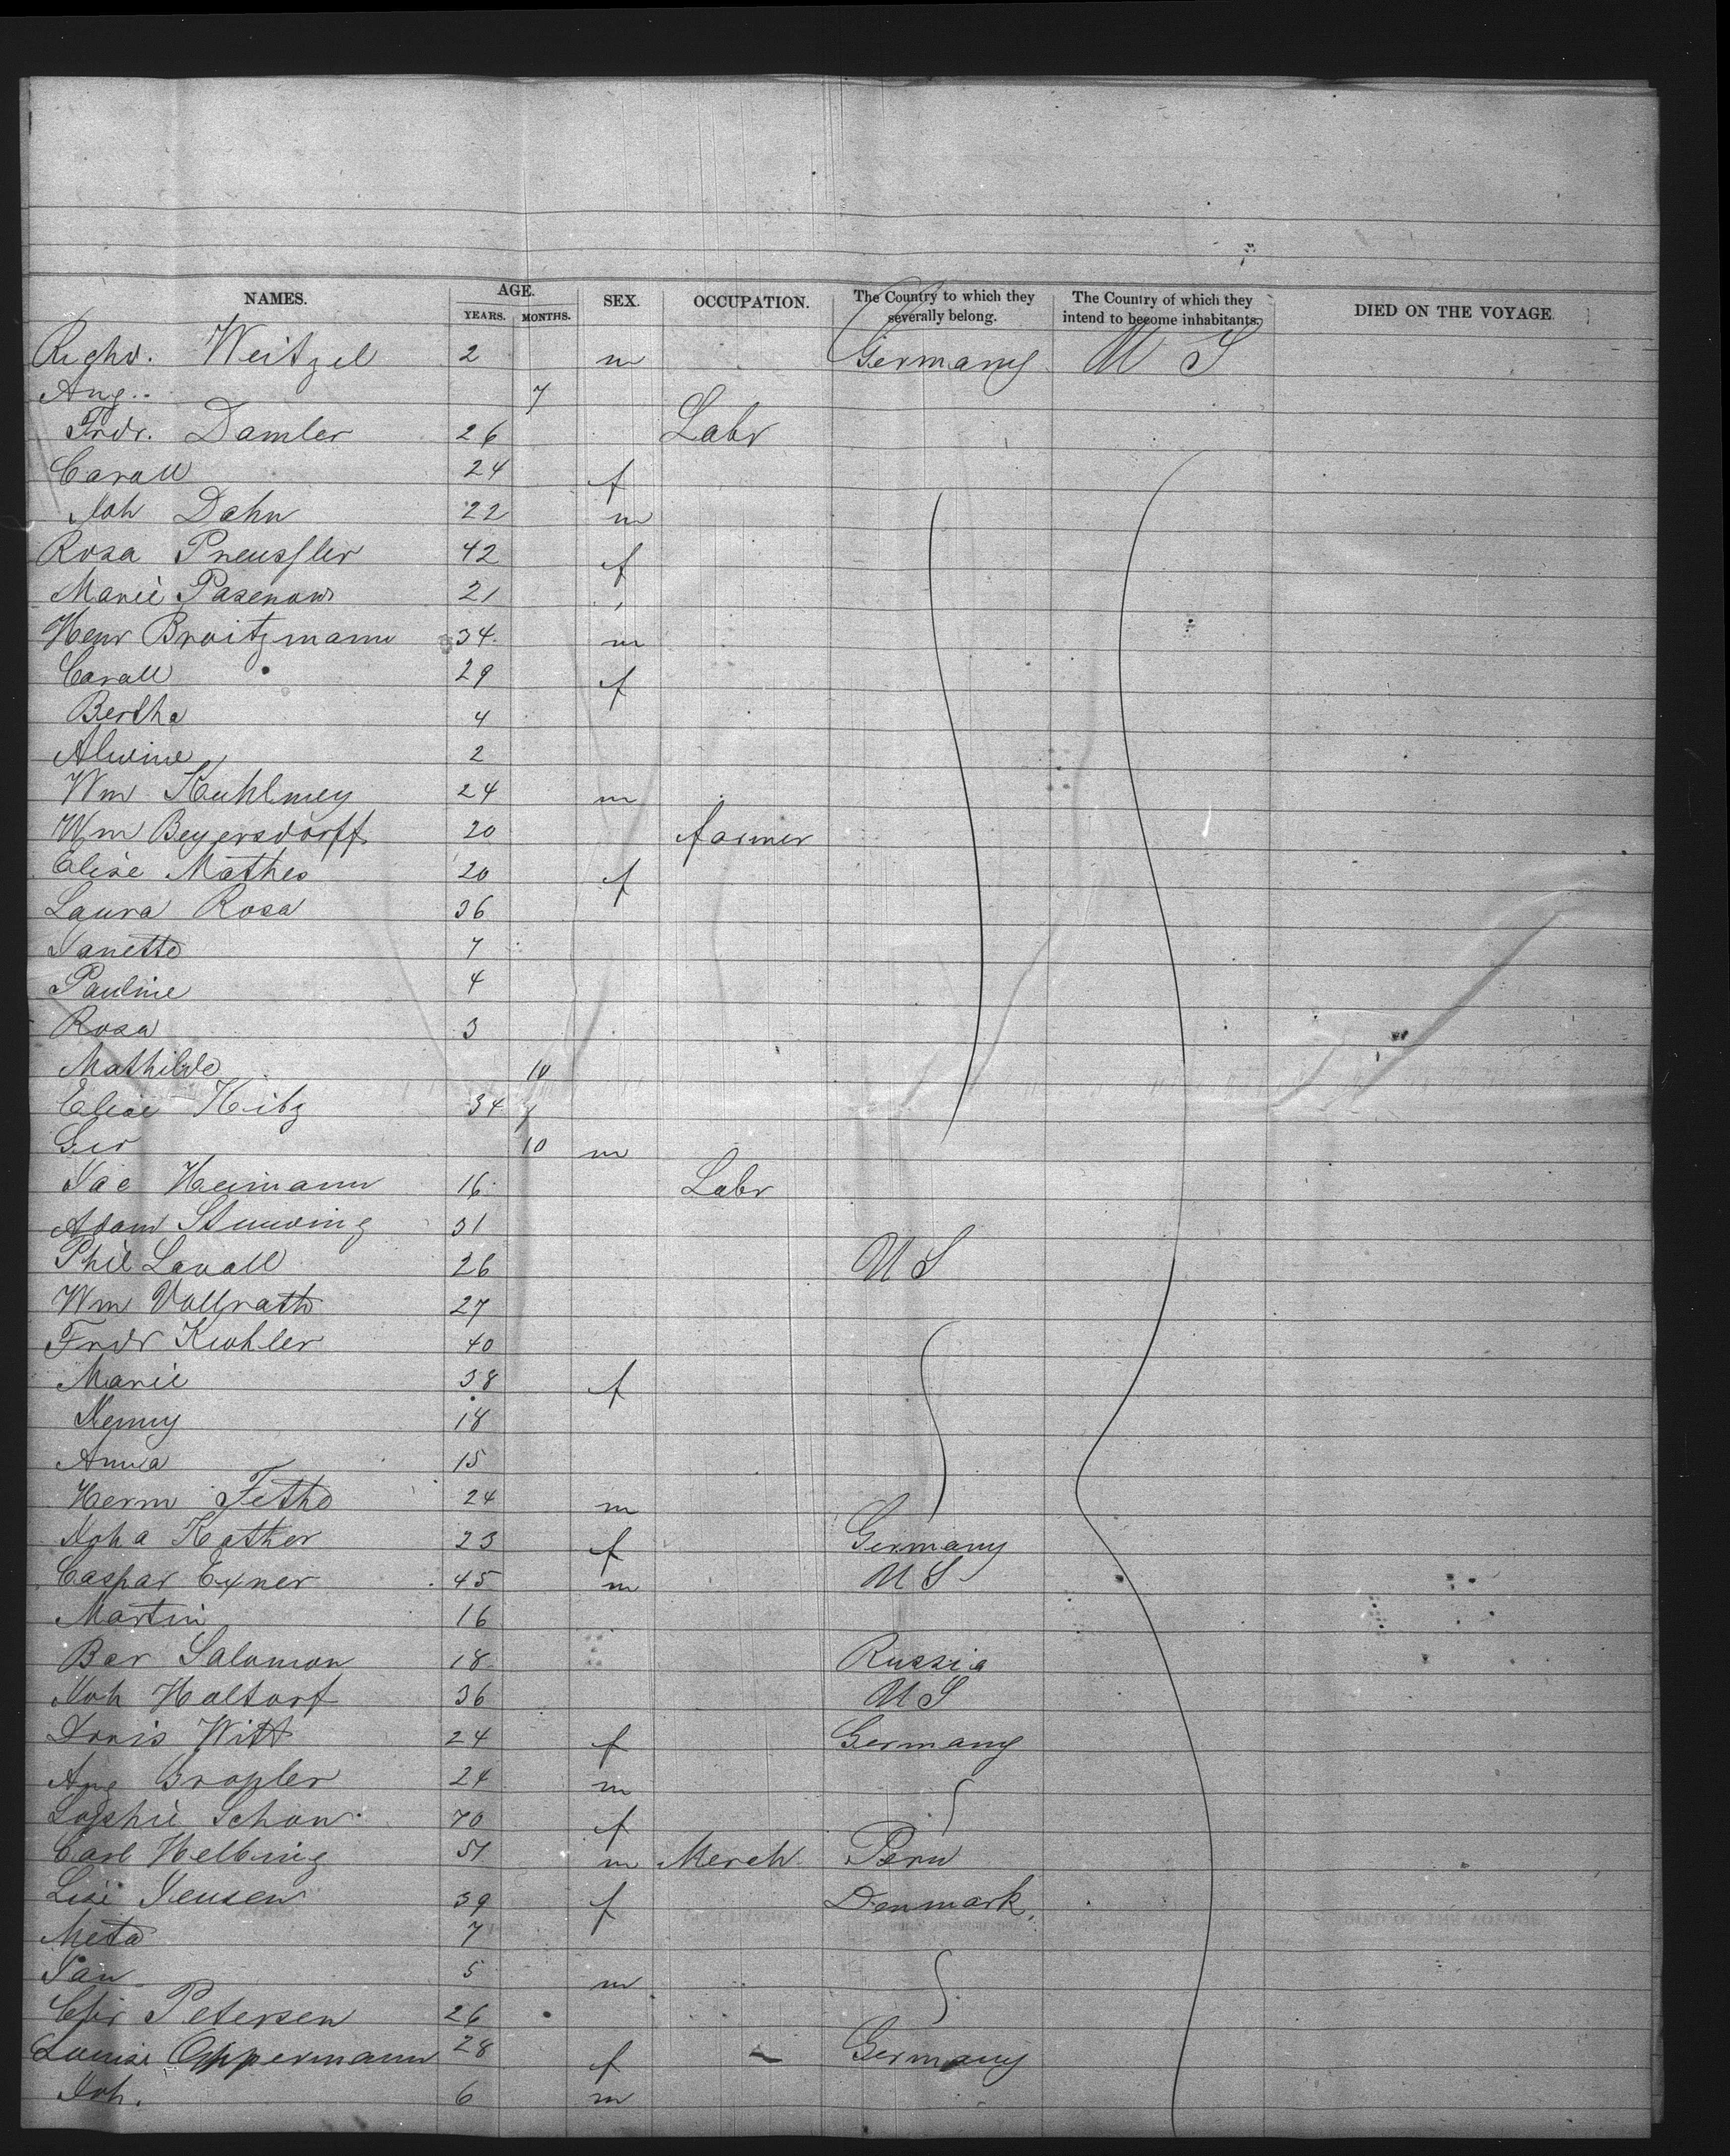 NAMES. AGE. YEARS. MONTHS. SEX. OCCUPATION. The Country to which they severally belong. The Country of which they intend to become inhabitants. DIED ON THE VOYAGE.
Richd. Weitzel 2 m Germany U S
Aug.. 7
Fridr. Damler 26 Labr
Carall 24 f
Joh Dahn 22 m
Rosa Preussler 42 f
Marie Pasenow 21
Henr Broitzmann 34 m
Carall 29 f
Bertha 4
Alwine 2
Wm Kuhlmey 24 m
Wm Beyersdorff 20 farmer
Elise Mathes 20 f
Laura Rosa 36
Janette 7
Pauline 4
Rosa 3
Mathilde 10
Elise Hitz 34
Geo 10 m
Jac Heimann 16 Labr
Adam 31
Phil Lavall 26 U S
Wm Vollrath 27
Fridr Kuohler 40
Marie 38 f
Jenny 18
Anna 15
Herm Tethe 24 m
Joha Kother 23 f Germany
Caspar Exner 45 m U S
Martin 16
Ber Salomon 18 Russia
Joh Holtorf 36 U S
Doris Witt 24 f Germany
Aug 24 m
Sophie Schon 70 f
Carl Helbing 51 m Merch Peru
Lise Jensen 39 f Denmark
Meta 7
Jan 5 m
Chr Petersen 26
Louise Oppermann 28 f Germany
Joh. 6 m